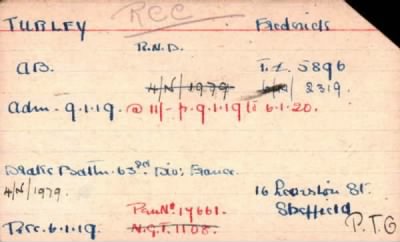 RCC
TURLEY Frederick
R.N.D.
AB. T.Z. 5896
4/N/1979 2319.
Adm. 9.1.19 @ 11/- p. 9.1.19 to 6.1.20.
Drake Battn. 63rd Div: France.
4/N/1979. 16 St.
Pen No. 17661. Sheffield
Rec. 6.1.19 N.G.T. 1108. P.T.O